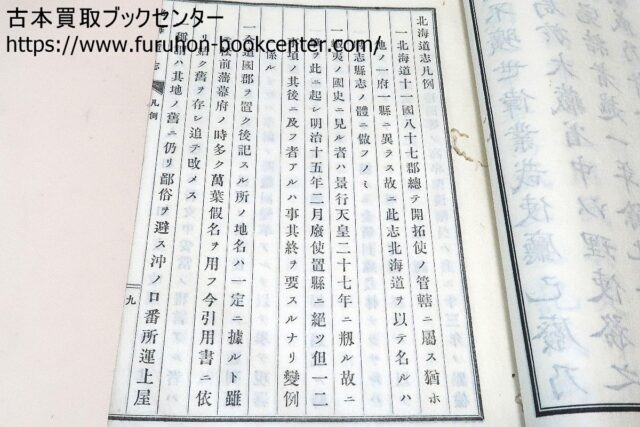 古本買取ブックセンター
https://www.furuhon-bookcenter.com/
北海道志凡例
一北海道十一國八十七郡總テ開拓使ノ管轄ニ屬ス猶ホ
地ノ一府一縣ニ異ラス故ニ此志北海道ヲ以テ名ルハ
志縣志ノ體ニ倣フノミ
夷ノ國史ニ見ル者ハ景行天皇二十七年ニ剏ル故ニ
ヲ此ニ起シ明治十五年二月廢使置縣ニ絕ツ但一二
事項ノ其後ニ及フ者アルハ事其終ヲ要スルナリ變例
係ル
一全道國郡ヲ置ク後記スル所ノ地名ハ一定ニ據ルト雖
松前藩幕府ノ時多ク萬葉假名ヲ用フ今引用書ニ依
リ姑ク舊ヲ存シ追テ改メス
稱謂ハ其地ノ舊ニ仍リ鄙俗ヲ避ス沖ノ口番所運上屋
凡例
九